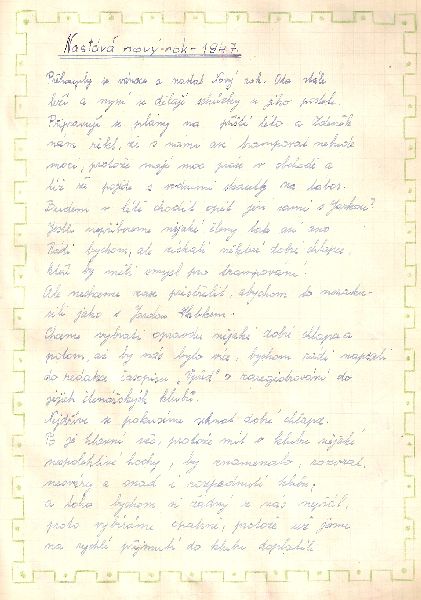 Nastává nový-rok-1947.
Přehouply se vánoce a nastal Nový rok. Oka stále
leží a nyní se dělají schůzky u jeho postele.
Připravují se plány na příští léto a Zdeněk
nám řekl, že s námi asi trampovat nebude
moci, protože mají moc práce v obchodě a
též že pojede s vodními skauty na tábor.
Budem v létě chodit opět jen sami s Jardou?
Jestli nepřibereme nějaké členy tak asi ano
Rádi bychom, ale získali některé dobré chlapce,
kteří by měli smysl pro trampování.
Ale nechceme zase přistřelit, abychom to neodnesli
jako s Jardou
Chceme vybrati opravdu nějaké dobré chlapce a
potom, až by nás bylo více, bychom rádi napsali
do redakce časopisu „Vpřed" o zaregistrování do
jejich čtenářských klubů.
Nejdříve se pokusíme sehnat dobré chlapce.
To je hlavní věc, protože mít v klubu nějaké
nespolehlivé hochy, by znamenalo, rozvrat,
nesváry a snad i rozpadnutí klubu,
a toho bychom si žádný z nás nepřál,
proto vybíráme opatrně, protože už jsme
na rychlé přijmutí do klubu doplatili